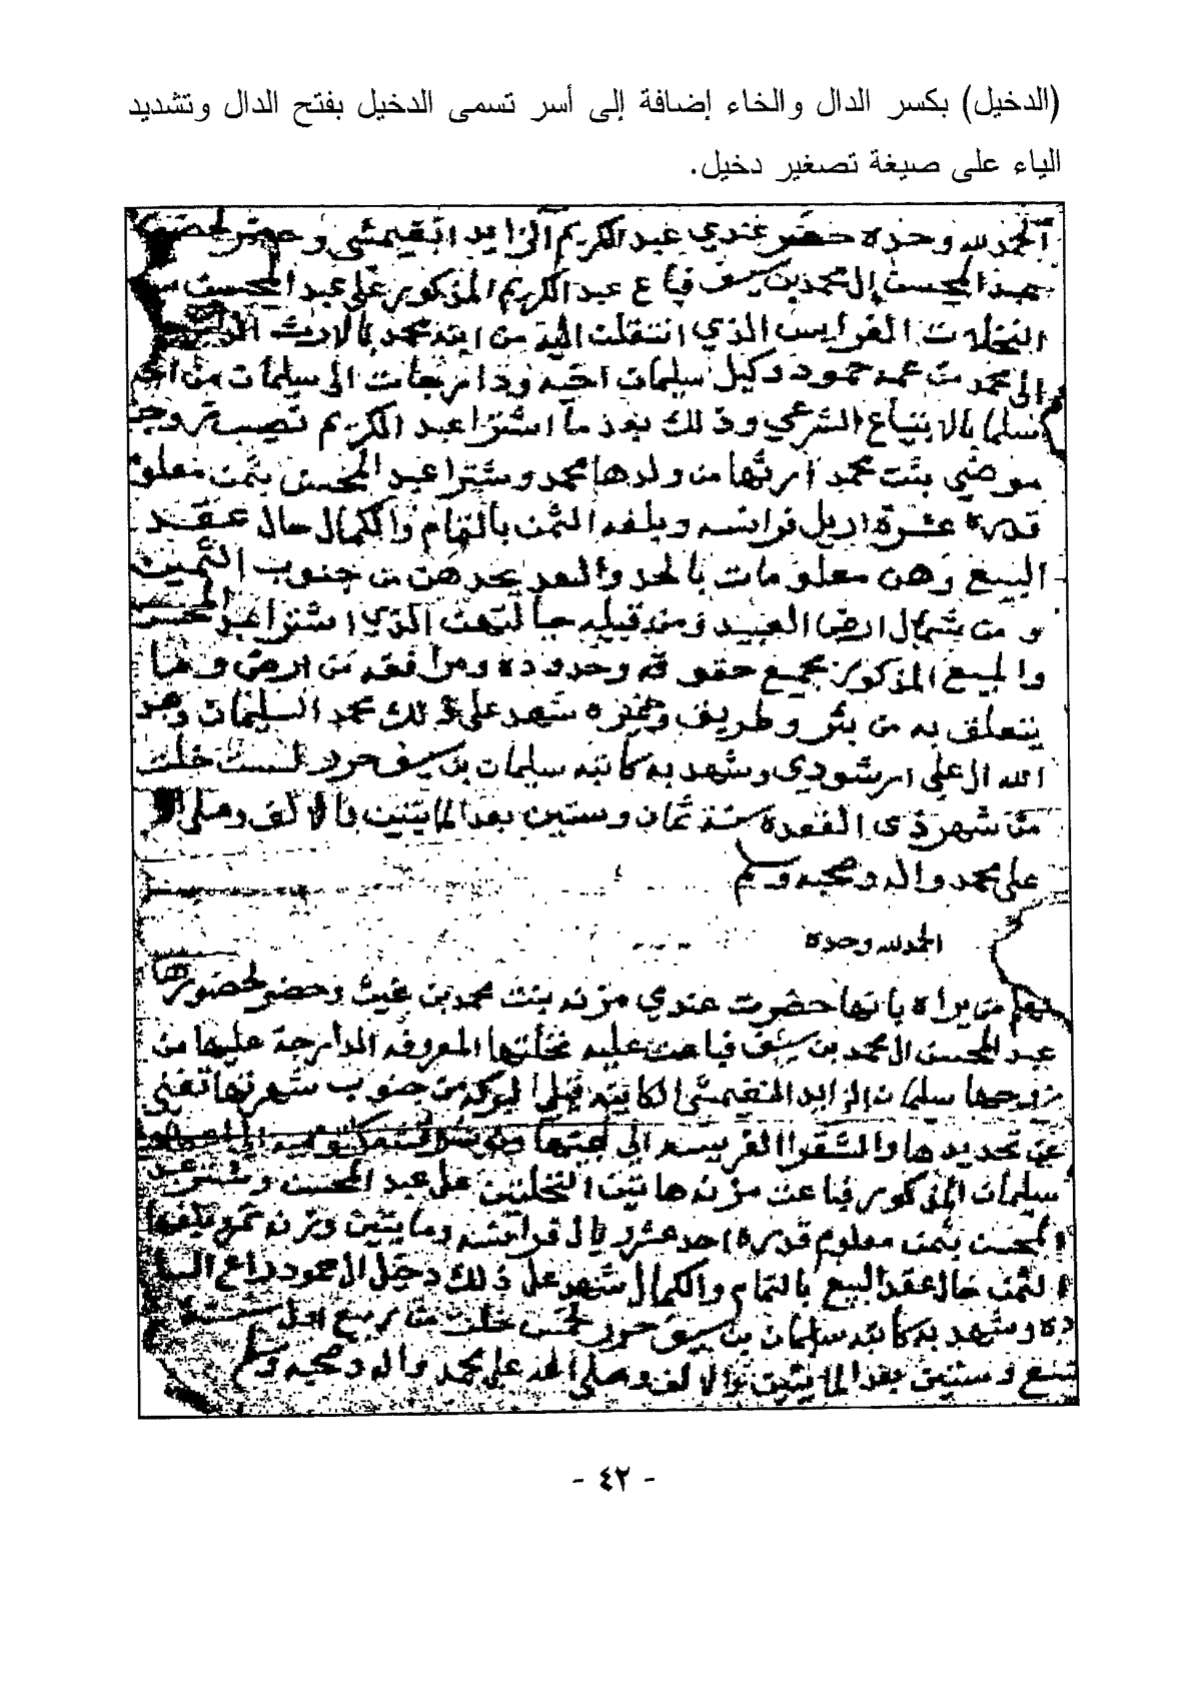 (الدخيل) بكسر الدال والخاء إضافة إلى أسر تسمى الدخيل بفتح الدال وتشديد
الياء على صيغة تصغير دخيل.
الحمد لله وحده حضر عندي عبد الكريم الزايد النقيمشي وحضر لحضوره
عبد المحسن ال محمد بن سيف فباع عبد الكريم المذكور على عبد المحسن
النخلات الغرايس الذي انتقلت اليه من ابنه محمد بالارث
الى محمد من عمه حمود وكيل سليمان اخيه ودارجات الى سليمان من
بالابتياع الشرعي وذلك بعد ما اشترا عبد الكريم نصيب
موضي بنت محمد ارثها من ولدها محمد وشترا عبد المحسن بثمن معلوم
قدره عشرة اريل فرانسه وبلغه الثمن بالتمام والكمال حال عقد
البيع وهن معلومات بالحد والعد يحدهن من جنوب
و من شمال ارض العبيد ومن قبله الذي اشترا عبد المحسن
والمبيع المذكور بجميع حقوقه وحدوده ومرافقه من ارض وما
يتعلق به من بئر وطريق وغيره شهد على ذلك محمد السليمان وعبد
الله ال علي الرشودي وشهد به كاتبه سليمان بن سيف حرر لست خلت
من شهر ذى القعدة سنة ثمان وستين بعد المايتين والالف وصلى الله
على محمد واله وصحبه وسلم
الحمد لله وحده
يعلم من يراه بانها حضرت عندي مزنه بنت محمد بن غيث وحضر لحضورها
عبد المحسن ال محمد بن سيف فباعت عليه نخلتها المعروفه الدارجة عليها من
زوجها سليمان الزايد النقيمشي الكاينه قبلي البركه من جنوب شهرتها تغني
عن تحديدها والشقرا الغريسه الي
سليمان المذكور فباعت مزنه هاتين النخلتين على عبد المحسن وشترا عبد
المحسن بثمن معلوم قدره احد عشر ريال فرانسه ومايتين وزنه تمر بلغها
الثمن حال عقد البيع بالتمام والكمال شهد على ذلك دخيل ال حمود راع
ده وشهد به كاتبه سليمان بن سيف حرر لخمس خلت من ربيع اول سنة
تسع وستين بعد المايتين والالف وصلى الله على محمد واله وصحبه وسلم
- ٤٢ -